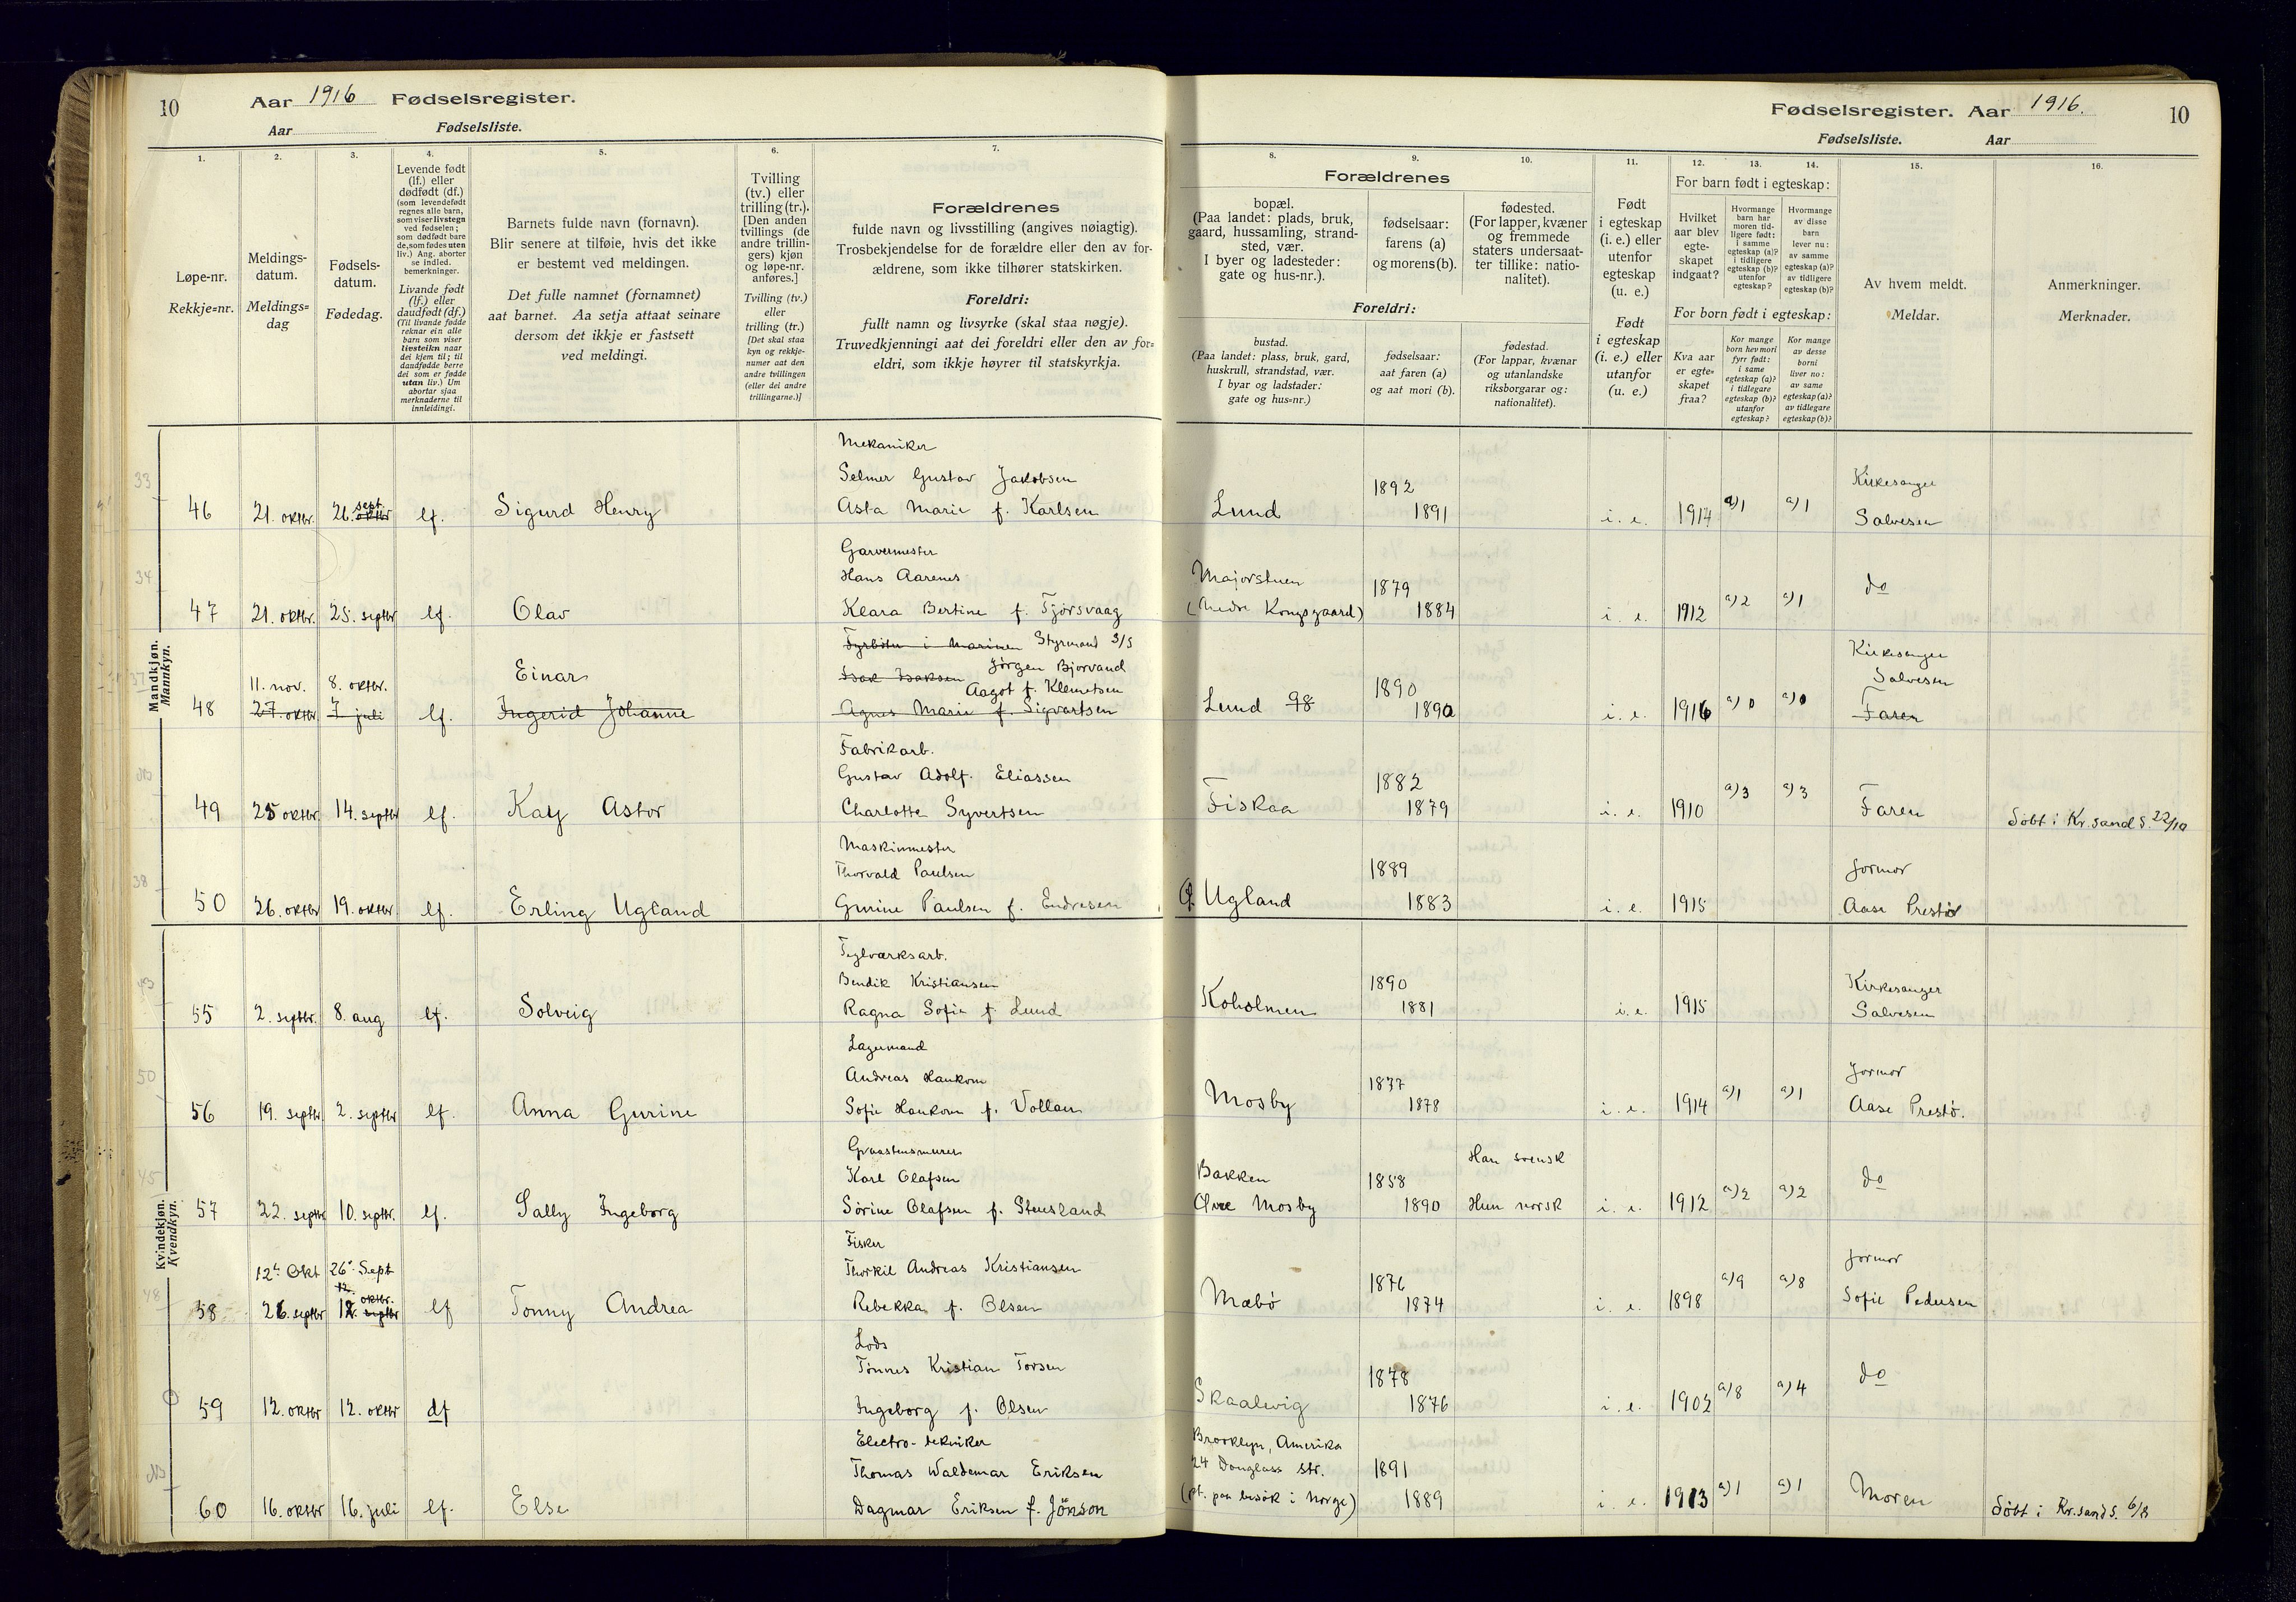 10 Aar 1916 Fødselsregister.
Aar Fødselsliste.
Fødselsregister. Aar 1916. 10
Fødselsliste. Aar
1.
Løpe-nr.
Rekkje=nr.
2.
Meldings-
datum.
Meldings=
dag
3.
Fødsels-
datum.
Fødedag.
4.
Levende født
(lf.) eller
dødfødt (df.)
(som levendefødt
regnes alle barn,
som viser livstegn
ved fødselen;
som dødfødt bare
de, som fødes uten
liv.) Ang. aborter
se indled.
bemerkninger.
Livande født
(lf.) eller
daudfødt (df.)
(Til livande fødde
reknar ein alle
barn som viser
livsteikn naar
dei kjem til; til
daudfødde berre
dei som er fødde
utan liv.) Um
abortar sjaa
merknaderne til
innleidingi.
5.
Barnets fulde navn (fornavn).
Blir senere at tilføie, hvis det ikke
er bestemt ved meldingen.
Det fulle namnet (fornamnet)
aat barnet. Aa setja attaat seinare
dersom det ikkje er fastsett
ved meldingi.
6.
Tvilling
(tv.) eller
trilling (tr.).
[Den anden
tvillings (de
andre trillin-
gers) kjøn
og løpe-nr.
anføres.]
Tvilling (tv.)
eller
trilling (tr.)
[Det skal staa
kyn og rekkje-
numer aat den
andre tvillingen
(eller dei andre
trillingarne.)]
7.
Forældrenes
fulde navn og livsstilling (angives nøiagtig).
Trosbekjendelse for de forældre eller den av for-
ældrene, som ikke tilhører statskirken.
Foreldri:
fullt namn og livsyrke (skal staa nøgje).
Truvedkjenningi aat dei foreldri eller den av for=
eldri, som ikkje høyrer til statskyrkja.
Forældrenes
8.
bopæl.
(Paa landet: plads, bruk,
gaard, hussamling, strand-
sted, vær.
I byer og ladesteder:
gate og hus-nr.).
9.
fødselsaar:
farens (a)
og morens (b).
10.
fødested.
(For lapper, kvæner
og fremmede
staters undersaat-
ter tillike: natio-
nalitet).
Foreldri:
bustad.
(Paa landet: plass, bruk, gard,
huskrull, strandstad, vær.
I byar og ladstader:
gate og hus=nr.)
fødselsaar:
aat faren (a)
og aat mori (b).
fødestad.
(For lappar, kvænar
og utanlandske
riksborgarar og:
nationalitet).
11.
Født
i egteskap
(i. e.) eller
utenfor
egteskap
(u. e.)
Født
i egteskap
(i. e.) eller
utanfor
(u. e.)
12. 13. 14.
For barn født i egteskap:
Hvilket
aar blev
egte-
skapet
indgaat?
Hvormange
barn har
moren tid-
ligere født:
i samme
egteskap (a)?
i tidligere
egteskap (b)?
utenfor
egteskap?
Hvormange
av disse
barn
lever nu:
av samme
egteskap (a)?
av tidligere
egteskap (b)?
For born født i egteskap:
Kva aar
er egte=
skapet
fraa?
Kor mange
born hev mori
fyrr født:
i same
egteskap (a)?
i tidlegare
egteskap (b)?
utanfor
egteskap?
Kor mange
av desse
borni
liver no:
av same
egteskap (a)?
av tidlegare
egteskap (b)?
15.
Av hvem meldt.
Meldar.
16.
Anmerkninger.
Merknader.
Mandkjøn.
Mannkyn.
33
Mekaniker
Selmer Gustav Jakobsen
46 21. oktbr. 26. sept. oktbr lf. Sigurd Henry Asta Marie f. Karlsen
Lund 1892 1891 i. e. 1914 a) 1 a) 1 Kirkesanger Salvesen
34
Garvermester
Hans Aarenes
47 21. oktbr. 25. septbr lf. Olav Klara Bertine f. Tjørsvaag
Majorstuen (Nedre Kongsgaard) 1879 1884 i. e. 1912 a) 2 a) 1 do
37
Fyrbøter i Marinen Styrmand S/S
Isak Isaksen Jørgen Bjorvand
Aagot f. Klemetsen
11. nov. 8. oktbr. Einar
48 27. oktbr. 7 juli lf. Ingerid Johanne Agnes Marie f. Sigvartsen
Lund 98 1890 1890 i. e. 1916 a) 0 a) 0 Kirkesanger Salvesen Faren
NB
Fabrikarb.
Gustav Adolf. Eliassen
49 25 oktbr. 14. septbr lf. Kay Astor Charlotte Syvertsen
Fiskaa 1882 1879 i. e. 1910 a) 3 a) 3 Faren Døbt i Kr.sand S. 22/10
38
Maskinmester
Thorvald Paulsen
50 26. oktbr 19. oktbr. lf. Erling Ugland Gurine Paulsen f. Endresen
Ø. Ugland 1889 1883 i. e. 1915 Jormor Aase Prestø
Kvindekjøn.
Kvendkyn.
43
Teglværksarb.
Bendik Kristiansen
55 2. septbr. 8. aug lf. Solveig Ragna Sofie f. Lund
Koholmen 1890 1881 i. e. 1915 Kirkesanger Salvesen
50
Lagermand
Andreas Haukom
56 19. septbr. 2. septbr lf. Anna Gurine Sofie Haukom f. Vollan
Mosby 1877 1878 i. e. 1914 a) 1 a) 1 Jormor Aase Prestø.
45
Graastensmurer
Karl Olafsen
57 22. septbr 10. septbr. lf. Sally Ingeborg Sörine Olafsen f. Stensland
Bakken Øvre Mosby 1858 1890 Han svensk Hun norsk i. e. 1912 a) 2 a) 2 do
48
Fisker
12te Okt 26de Sept Thorkil Andreas Kristiansen
58 26. septbr 12. oktbr. septbr lf Tonny Andrea Rebekka f. Olsen
Mæbö 1876 1874 i. e. 1898 a) 9 a) 8 Jormor Sofie Pedersen
Lods
Tönnes Kristian Torsen
59 12. oktbr 12. oktbr df Ingeborg f. Olsen
Skaalevig 1878 1876 i. e. 1902 a) 8 a) 4 do
NB
Electro-tekniker
Thomas Waldemar Eriksen
60 16. oktbr 16. juli lf. Else Dagmar Eriksen f. Jönson
Brooklyn, Amerika
24 Douglass str.
(pt. paa besök i Norge) 1891 1889 i. e. 1913 a) 1 a) 1 Moren Døbt i Kr.sand S. 6/8